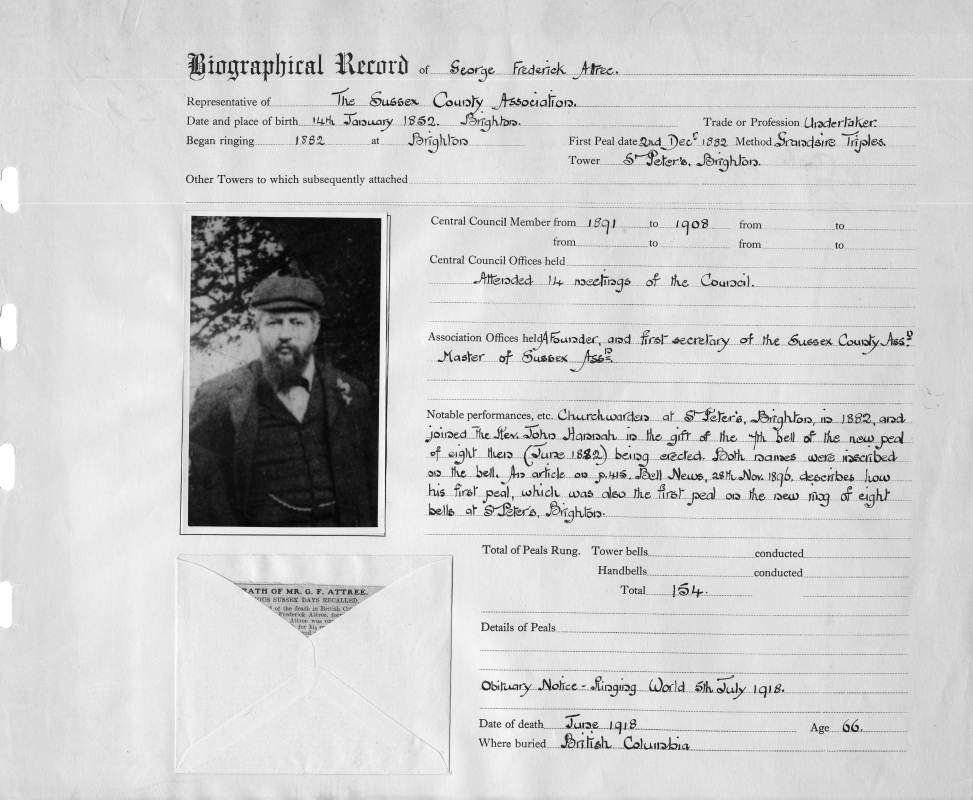 Biographical Record of George Frederick Attree.
Representative of The Sussex County Association.
Date and place of birth 14th January 1852. Brighton. Trade or Profession Undertaker.
Began ringing 1882 at Brighton First Peal date 2nd Decr 1882 Method Grandsire Triples.
Tower St Peter's, Brighton.
Other Towers to which subsequently attached
Central Council Member from 1891 to 1908 from to
from to from to
Central Council Offices held
Attended 14 meetings of the Council.
Association Offices held A Founder, and first secretary of the Sussex County Assn.
Master of Sussex Assn.
Notable performances, etc. Churchwarden at St Peter's, Brighton, in 1882, and
joined the Rev. John Hannah in the gift of the 7th bell of the new peal
of eight then (June 1882) being erected. Both names were inscribed
on the bell. An article on p.415. Bell News, 28th Nov. 1896. describes how
his first peal, which was also the first peal on the new ring of eight
bells at St Peter's, Brighton.
Total of Peals Rung. Tower bells conducted
Handbells conducted
Total 154.
Details of Peals
Obituary Notice - Ringing World 5th July 1918.
Date of death June 1918 Age 66.
Where buried British Columbia
EATH OF MR. G. F. ATTREE.
OUS SUSSEX DAYS RECALLED.
d of the death in British Co
Frederick Attree, for
Attree was
for his